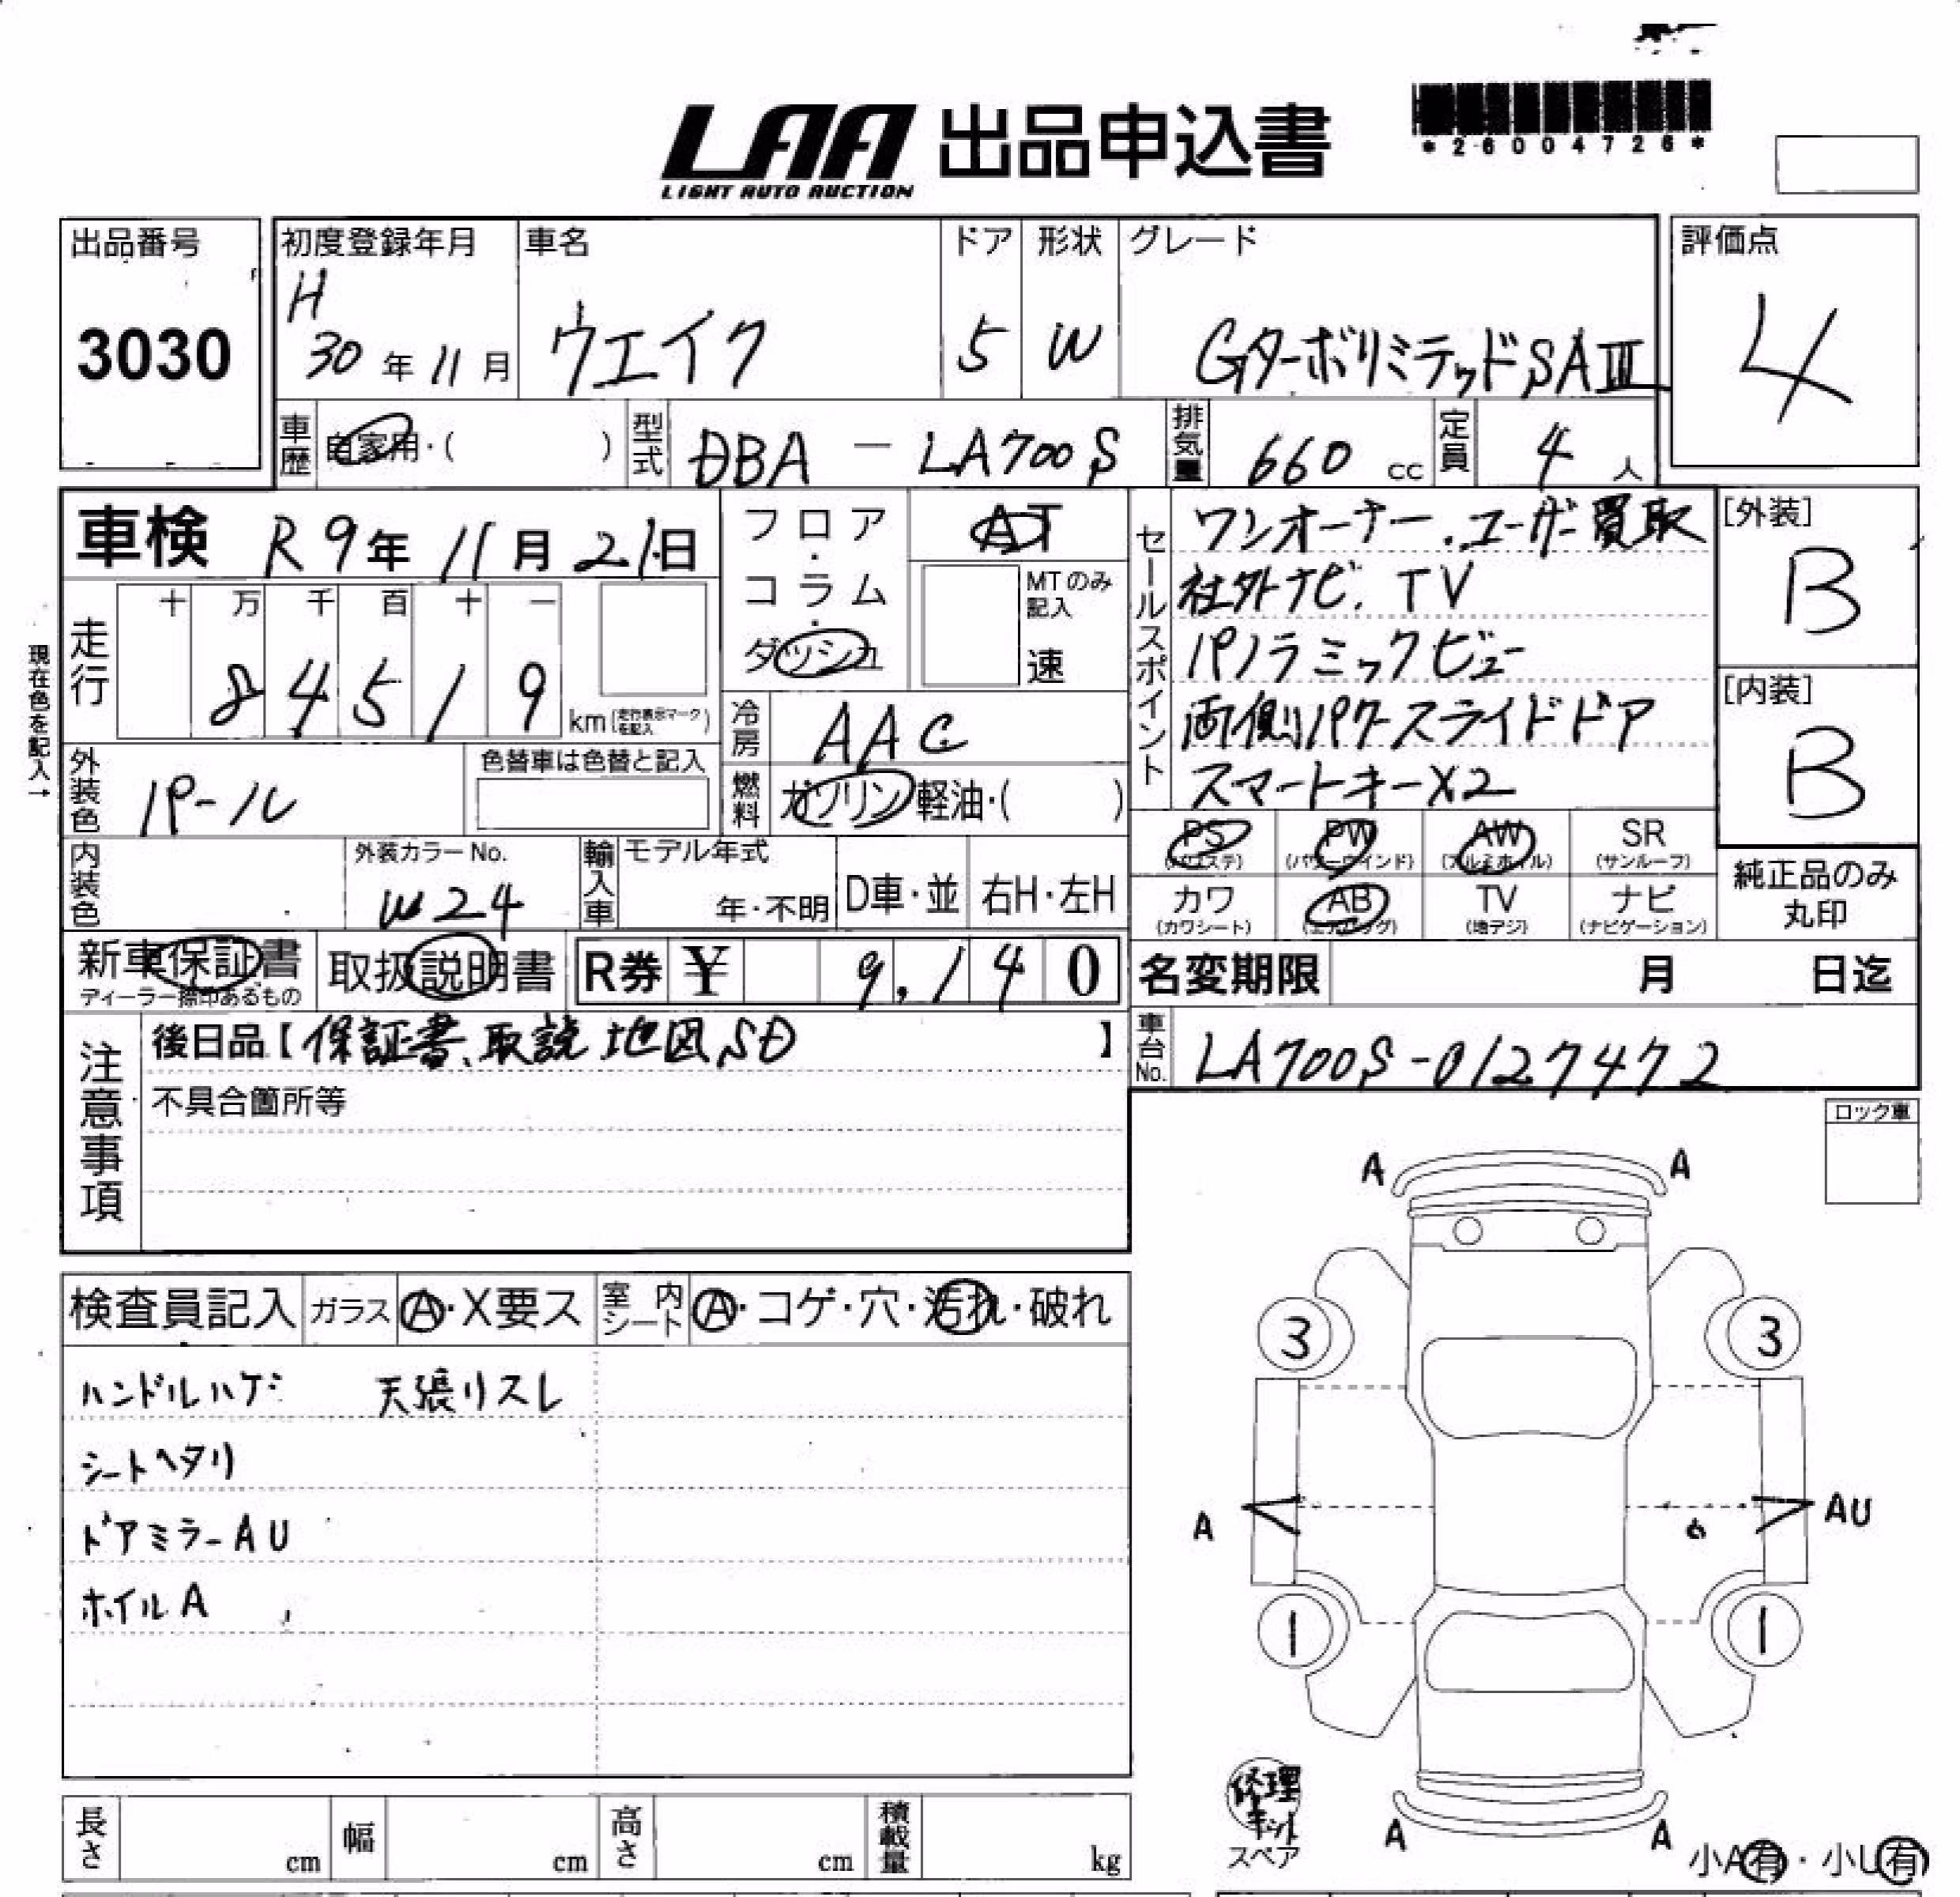 LAA 出品申込書
LIGHT AUTO AUCTION
*26004726*
出品番号
3030
初度登録年月
H
30年11月
車名
ウエイク
ドア
5
形状
W
グレード
GターボリミテッドSAⅢ
評価点
4
車歴
自家用・( )
型式
DBA - LA700S
排気量
660 cc
定員
4 人
車検 R9年11月21日
フロア・コラム・ダッシュ
AT
MTのみ記入
速
セールスポイント
ワンオーナー.ユーザー買取
社外ナビ. TV
パノラミックビュー
両側パワースライドドア
スマートキーX2
[外装]
B
[内装]
B
現在色を記入→
走行
十 万 千 百 十 一
8 4 5 1 9
km (走行表示マークを記入)
冷房
AAC
燃料
ガソリン 軽油・( )
外装色
パール
色替車は色替と記入
内装色
外装カラーNo.
W24
輸入車
モデル年式
年・不明
D車・並
右H・左H
PS
(パワステ)
PW
(パワーウインド)
AW
(アルミホイル)
SR
(サンルーフ)
カワ
(カワシート)
AB
(エアバッグ)
TV
(地デジ)
ナビ
(ナビゲーション)
純正品のみ
丸印
新車保証書
ディーラー捺印あるもの
取扱説明書
R券 ¥ 9,140
名変期限 月 日迄
注意事項
後日品【保証書、取説 地図、SD】
不具合箇所等
車台No.
LA700S-0127472
ロック車
検査員記入
ガラス
A・X要ス
室内シート
A・コゲ・穴・汚れ・破れ
ハンドルハゲ 天張リスレ
シートヘタリ
ドアミラーAU
ホイルA
A A
3 3
A AU
1 1
修理キット
スペア
A A
小A有・小U有
長さ cm
幅 cm
高さ cm
積載量 kg